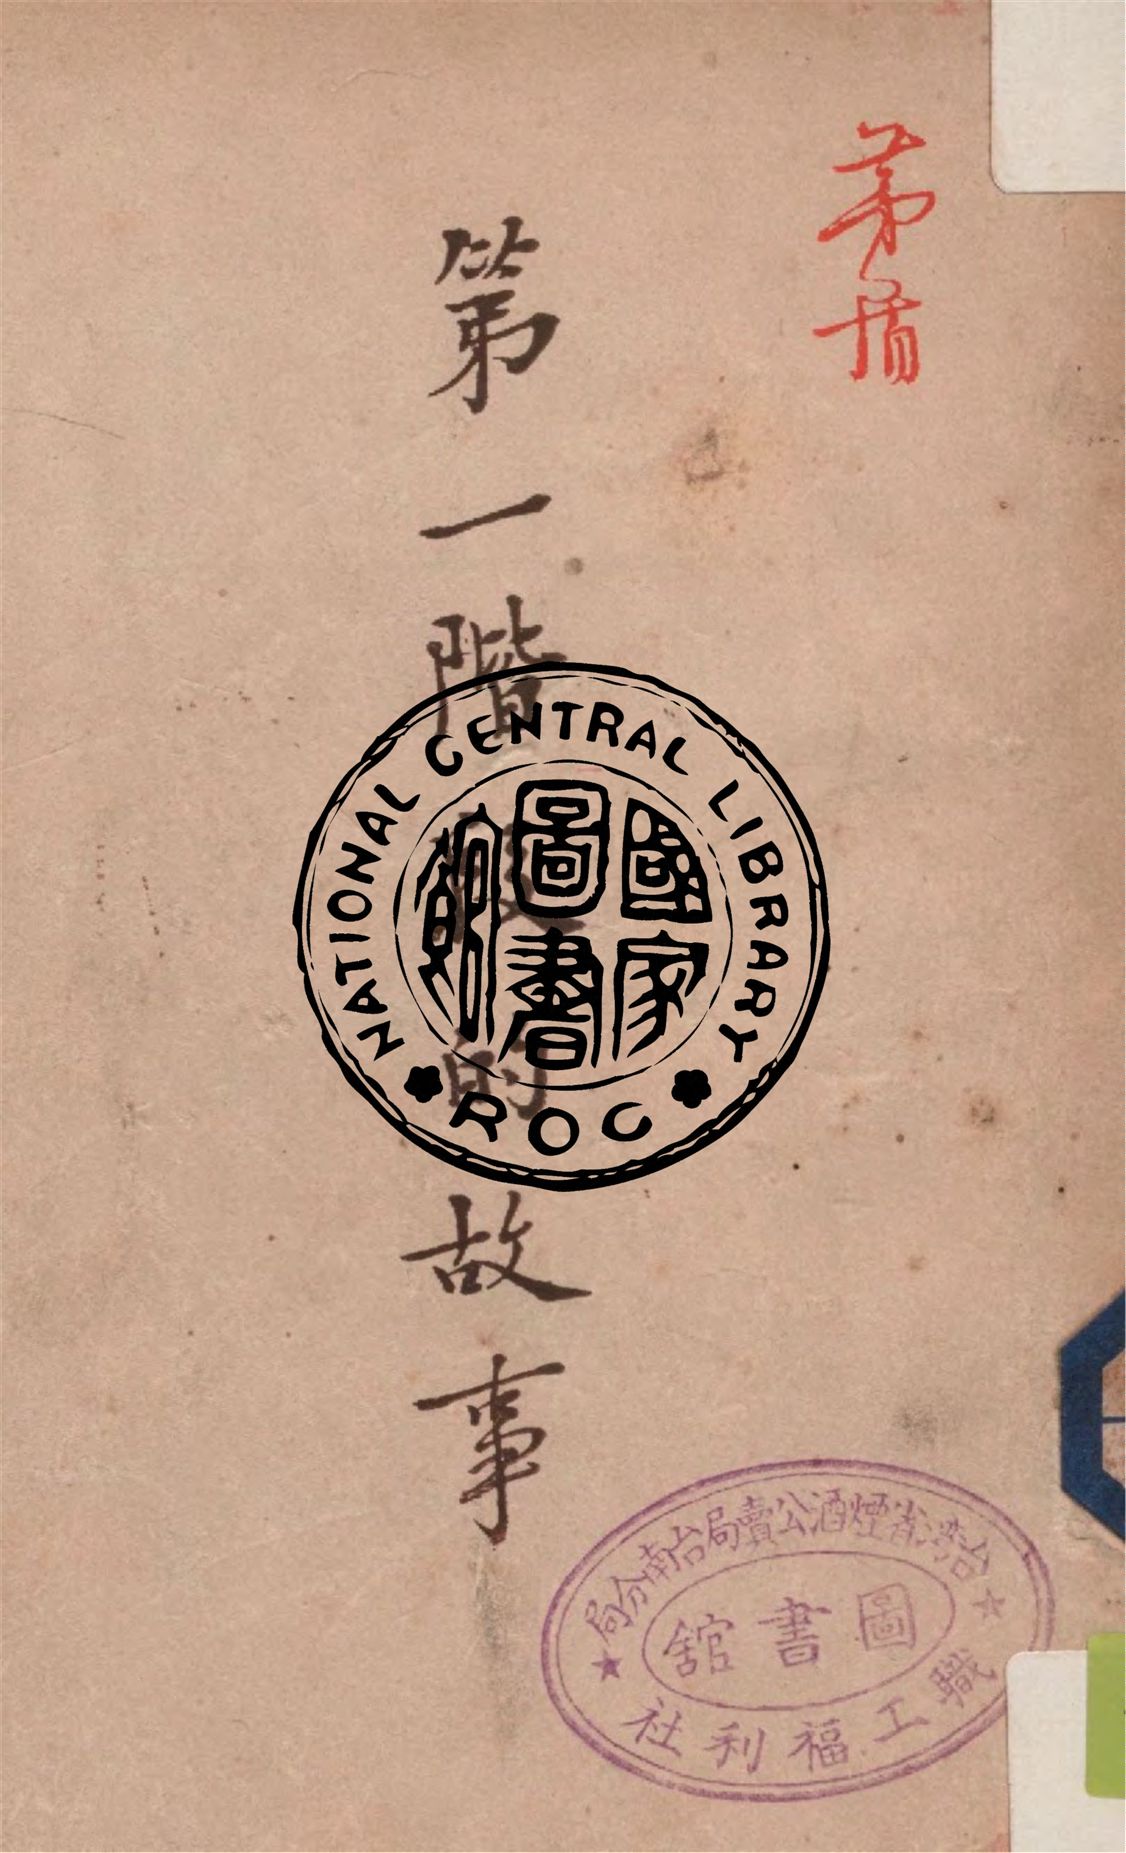 茅盾
第一階段的故事
NATIONAL CENTRAL LIBRARY
國家圖書館
ROC
台灣省煙酒公賣局台南分局
圖書館
職工福利社